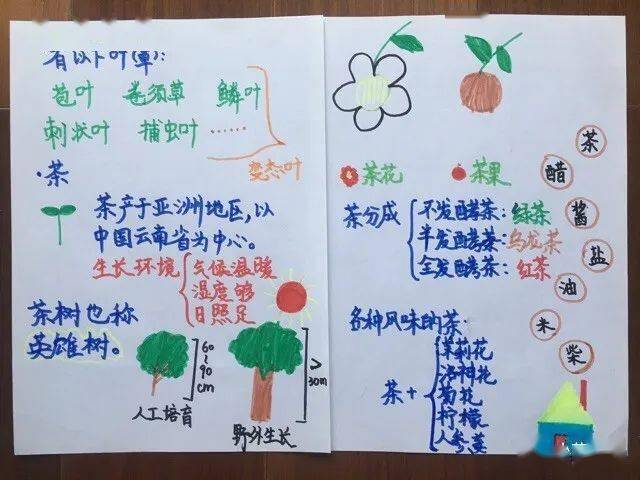 有以下叶(草):
苞叶 卷须草 鳞叶
刺状叶 捕虫叶 ……
变态叶
·茶
茶产于亚洲地区,以
中国云南省为中心。
生长环境
气候温暖
湿度够
日照足
茶树也称
英雄树。
60~90cm
人工培育
>30m
野外生长
茶花 茶果
茶分成
不发酵茶:绿茶
半发酵茶:乌龙茶
全发酵茶:红茶
各种风味的茶
茶+
茉莉花
洛神花
菊花
柠檬
人参
茶
醋
酱
盐
油
米
柴